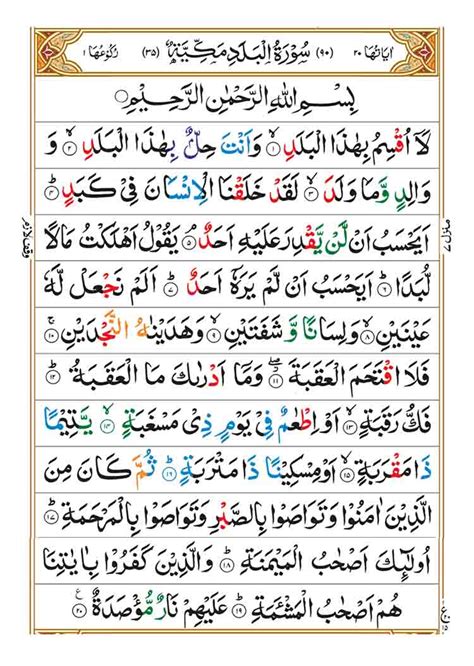 اٰیَاتُهَا ۲۰ (۹۰) سُوْرَةُ الْبَلَدِ مَكِّیَّةٌ (۳۵) رُكُوْعُهَا ۱
بِسْمِ اللهِ الرَّحْمٰنِ الرَّحِیْمِ
لَاۤ اُقْسِمُ بِهٰذَا الْبَلَدِ ۙ۱ وَاَنْتَ حِلٌّۢ بِهٰذَا الْبَلَدِ ۙ۲ وَ
وَالِدٍ وَّمَا وَلَدَ ۙ۳ لَقَدْ خَلَقْنَا الْاِنْسَانَ فِیْ كَبَدٍ ؕ۴
اَیَحْسَبُ اَنْ لَّنْ یَّقْدِرَ عَلَیْهِ اَحَدٌ ۘ۵ یَقُوْلُ اَهْلَكْتُ مَالًا
لُّبَدًا ؕ۶ اَیَحْسَبُ اَنْ لَّمْ یَرَهٗۤ اَحَدٌ ؕ۷ اَلَمْ نَجْعَلْ لَّهٗ
عَیْنَیْنِ ۙ۸ وَلِسَانًا وَّ شَفَتَیْنِ ۙ۹ وَهَدَیْنٰهُ النَّجْدَیْنِ ۚ۱۰
فَلَا اقْتَحَمَ الْعَقَبَةَ ۖ۱۱ وَمَاۤ اَدْرٰىكَ مَا الْعَقَبَةُ ؕ۱۲
فَكُّ رَقَبَةٍ ۙ۱۳ اَوْ اِطْعٰمٌ فِیْ یَوْمٍ ذِیْ مَسْغَبَةٍ ۙ۱۴ یَّتِیْمًا
ذَا مَقْرَبَةٍ ۙ۱۵ اَوْ مِسْكِیْنًا ذَا مَتْرَبَةٍ ؕ۱۶ ثُمَّ كَانَ مِنَ
الَّذِیْنَ اٰمَنُوْا وَتَوَاصَوْا بِالصَّبْرِ وَتَوَاصَوْا بِالْمَرْحَمَةِ ؕ۱۷
اُولٰٓىِٕكَ اَصْحٰبُ الْمَیْمَنَةِ ؕ۱۸ وَالَّذِیْنَ كَفَرُوْا بِاٰیٰتِنَا
هُمْ اَصْحٰبُ الْمَشْـَٔمَةِ ؕ۱۹ عَلَیْهِمْ نَارٌ مُّؤْصَدَةٌ ۲۰ ع
منزل ۷